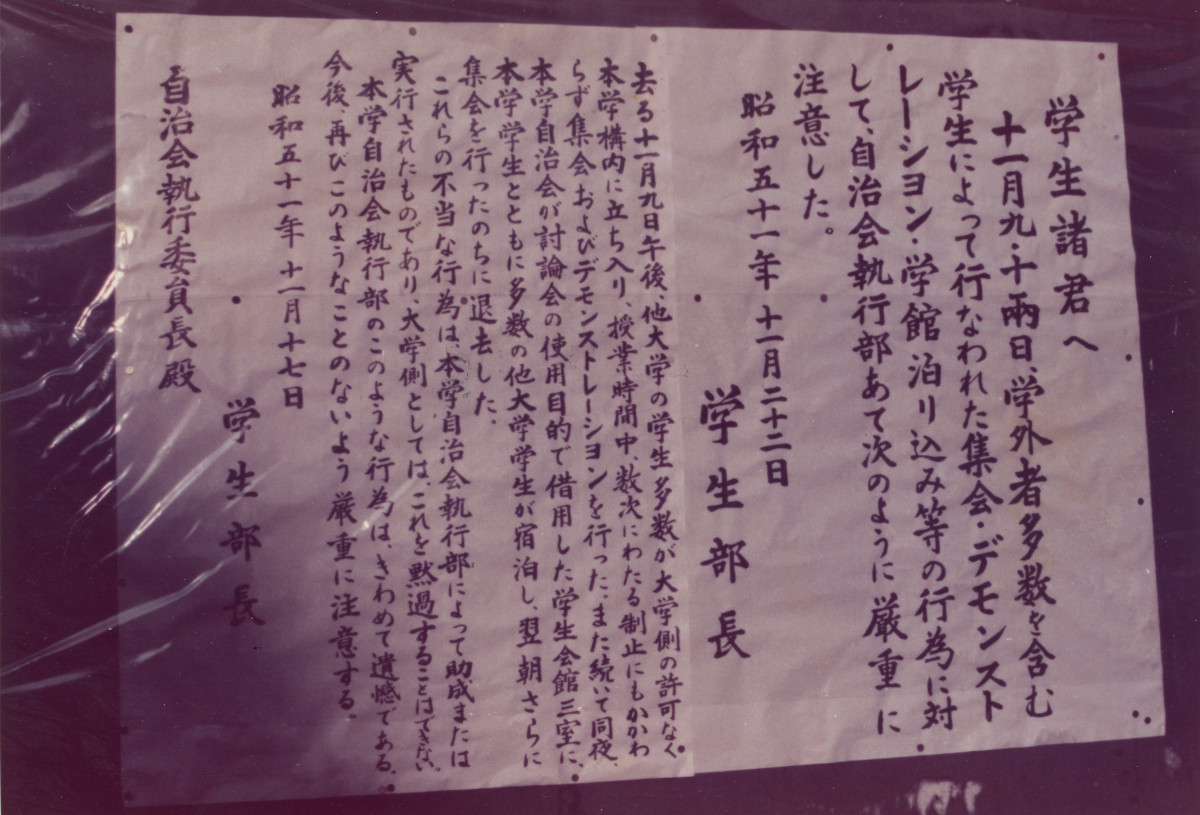 学生諸君へ
十一月九・十両日、学外者多数を含む
学生によって行なわれた集会・デモンスト
レーション・学館泊り込み等の行為に対
して、自治会執行部あて次のように厳重に
注意した。
昭和五十一年十一月二十二日
学生部長
去る十一月九日午後、他大学の学生多数が大学側の許可なく
本学構内に立ち入り、授業時間中、数次にわたる制止にもかかわ
らず集会およびデモンストレーションを行った。また続いて同夜、
本学自治会が討論会の使用目的で借用した学生会館三室に、
本学学生とともに多数の他大学学生が宿泊し、翌朝さらに
集会を行ったのちに退去した。
これらの不当な行為は、本学自治会執行部によって助成または
実行されたものであり、大学側としては、これを黙過することはできない。
本学自治会執行部のこのような行為は、きわめて遺憾である。
今後、再びこのようなことのないよう厳重に注意する。
昭和五十一年十一月十七日
学生部長
自治会執行委員長殿